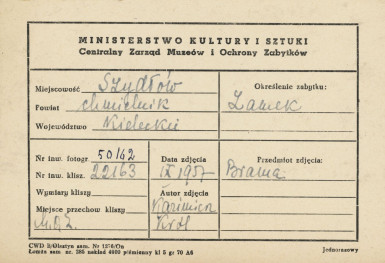 MINISTERSTWO KULTURY I SZTUKI
Centralny Zarząd Muzeów i Ochrony Zabytków
Miejscowość Szydłów
Powiet chmielnik
Województwo Kielecki
Określenie zabytku:
Zamek
Nr inw. fotogr. 50/62
Nr inw. klisz. 22163
Wymiary kliszy
Miejsce przechow kliszy
Data zdjęcia
IX 1957
Autor zdjęcia
Kazimierz
Król
Przedmiot zdjęcia:
Brama
CWD R/Olsztyn zam. Nr 1276/On
Łomża zam. nr. 285 nakład 4000 piśmienny kl 5 gr 70 A6
Jednorazowy